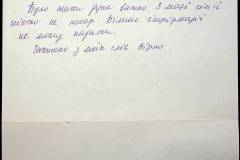 Було жити дуже важко. З моєї сім'ї
ніхто не помер. Більше інформації
не можу надати.
Записано з моїх слів вірно.